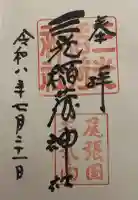 奉拝
三光稲荷神社
尾張国
令和八年七月二十一日